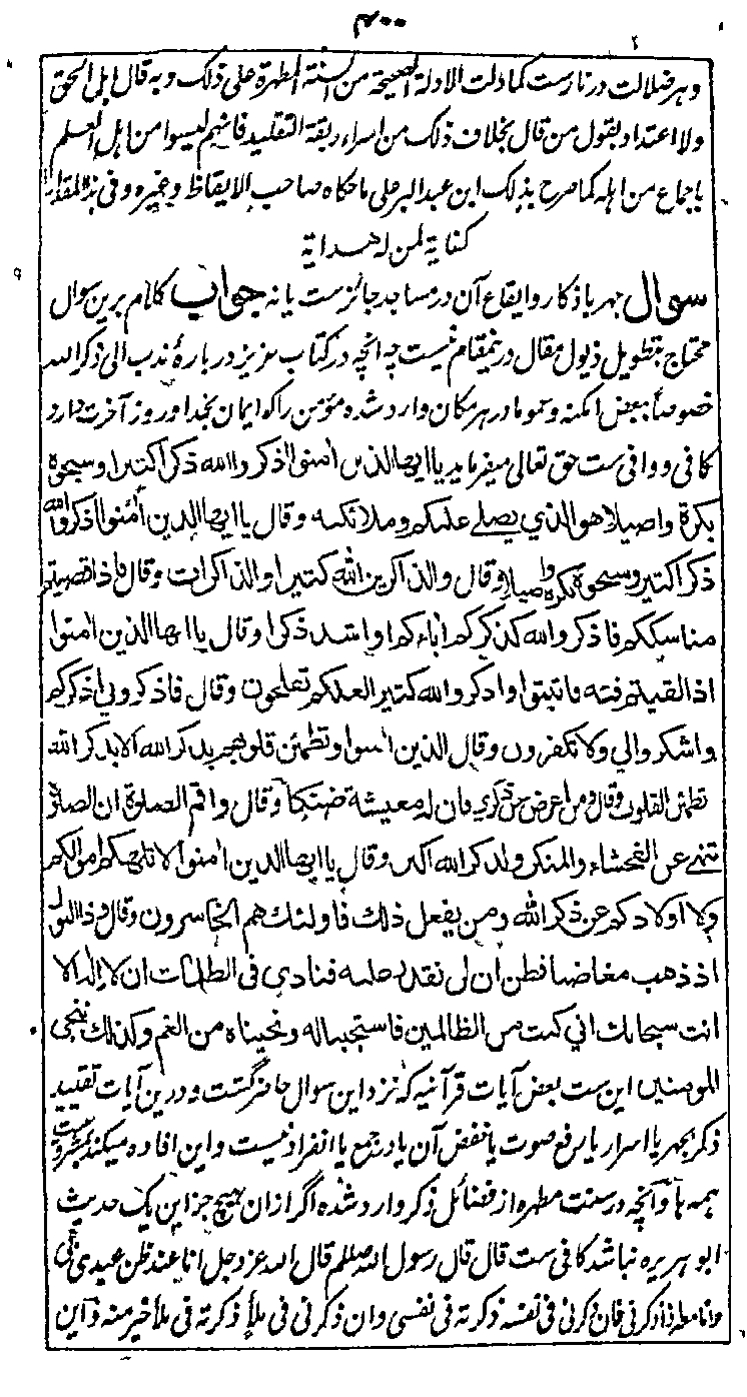 ۴۰۰
وهر ضلالت در نارست كما دلت الادلة الصحيحة من السنة المطهرة على ذلك وبه قال اهل الحق
ولا اعتداد بقول من قال بخلاف ذلك من اسراء ربقة التقليد فانهم ليسوا من اهل العلم
باجماع من اهله كما صرح بذلك ابن عبد البر على ما حكاه صاحب الايقاظ وغيره وفي هذا المقدار
كفاية لمن له هداية
سوال جهر باذكار وايقاع آن در مساجد جائزست يا نه جواب كلام برين سوال
محتاج بتطويل ذيول مقال درينمقام نيست چه انچه در كتاب عزيز درباره ندب الى ذكر الله
خصوصا ببعض امكنه وعموما در هر مكان وارد شده مؤمن را كه ايمان بخدا وروز آخرت دارد
كافي ووافي ست حق تعالى ميفرمايد يا ايها الذين امنوا اذكروا الله ذكرا كثيرا وسبحوه
بكرة واصيلا هو الذي يصلي عليكم وملائكته وقال يا ايها الذين آمنوا اذكروا الله
ذكرا كثيرا وسبحوه بكرة واصيلا وقال والذاكرين الله كثيرا والذاكرات وقال فاذا قضيتم
مناسككم فاذكروا الله كذكركم اباءكم او اشد ذكرا وقال يا ايها الذين امنوا
اذا لقيتم فئة فاثبتوا واذكروا الله كثيرا لعلكم تفلحون وقال فاذكروني اذكركم
واشكروا لي ولا تكفرون وقال الذين امنوا وتطمئن قلوبهم بذكر الله الا بذكر الله
تطمئن القلوب وقال ومن اعرض عن ذكري فان له معيشة ضنكا وقال واقم الصلوة ان الصلوة
تنهى عن الفحشاء والمنكر ولذكر الله اكبر وقال يا ايها الذين امنوا لا تلهكم اموالكم
ولا اولادكم عن ذكر الله ومن يفعل ذلك فاولئك هم الخاسرون وقال وذا النون
اذ ذهب مغاضبا فظن ان لن نقدر عليه فنادى في الظلمات ان لا اله الا
انت سبحانك اني كنت من الظالمين فاستجبنا له ونجيناه من الغم وكذلك ننجي
المومنين اين ست بعض آيات قرآنيه كه نزد اين سوال حاضر گشت و درين آيات تقييد
ذكر بجهر يا اسرار يا رفع صوت يا خفض آن يا در جمع يا انفراد نيست واين افاده ميكند
همه ها وآنچه در سنت مطهره از فضائل ذكر وارد شده اگر ازان هيچ جز اين يك حديث
ابو هريره نباشد كافي ست قال قال رسول الله صللم قال الله عز وجل انا عند ظن عبدي بي
وانا معه اذا ذكرني فان ذكرني في نفسه ذكرته في نفسي وان ذكرني في ملأ ذكرته في ملأ خير منه واين